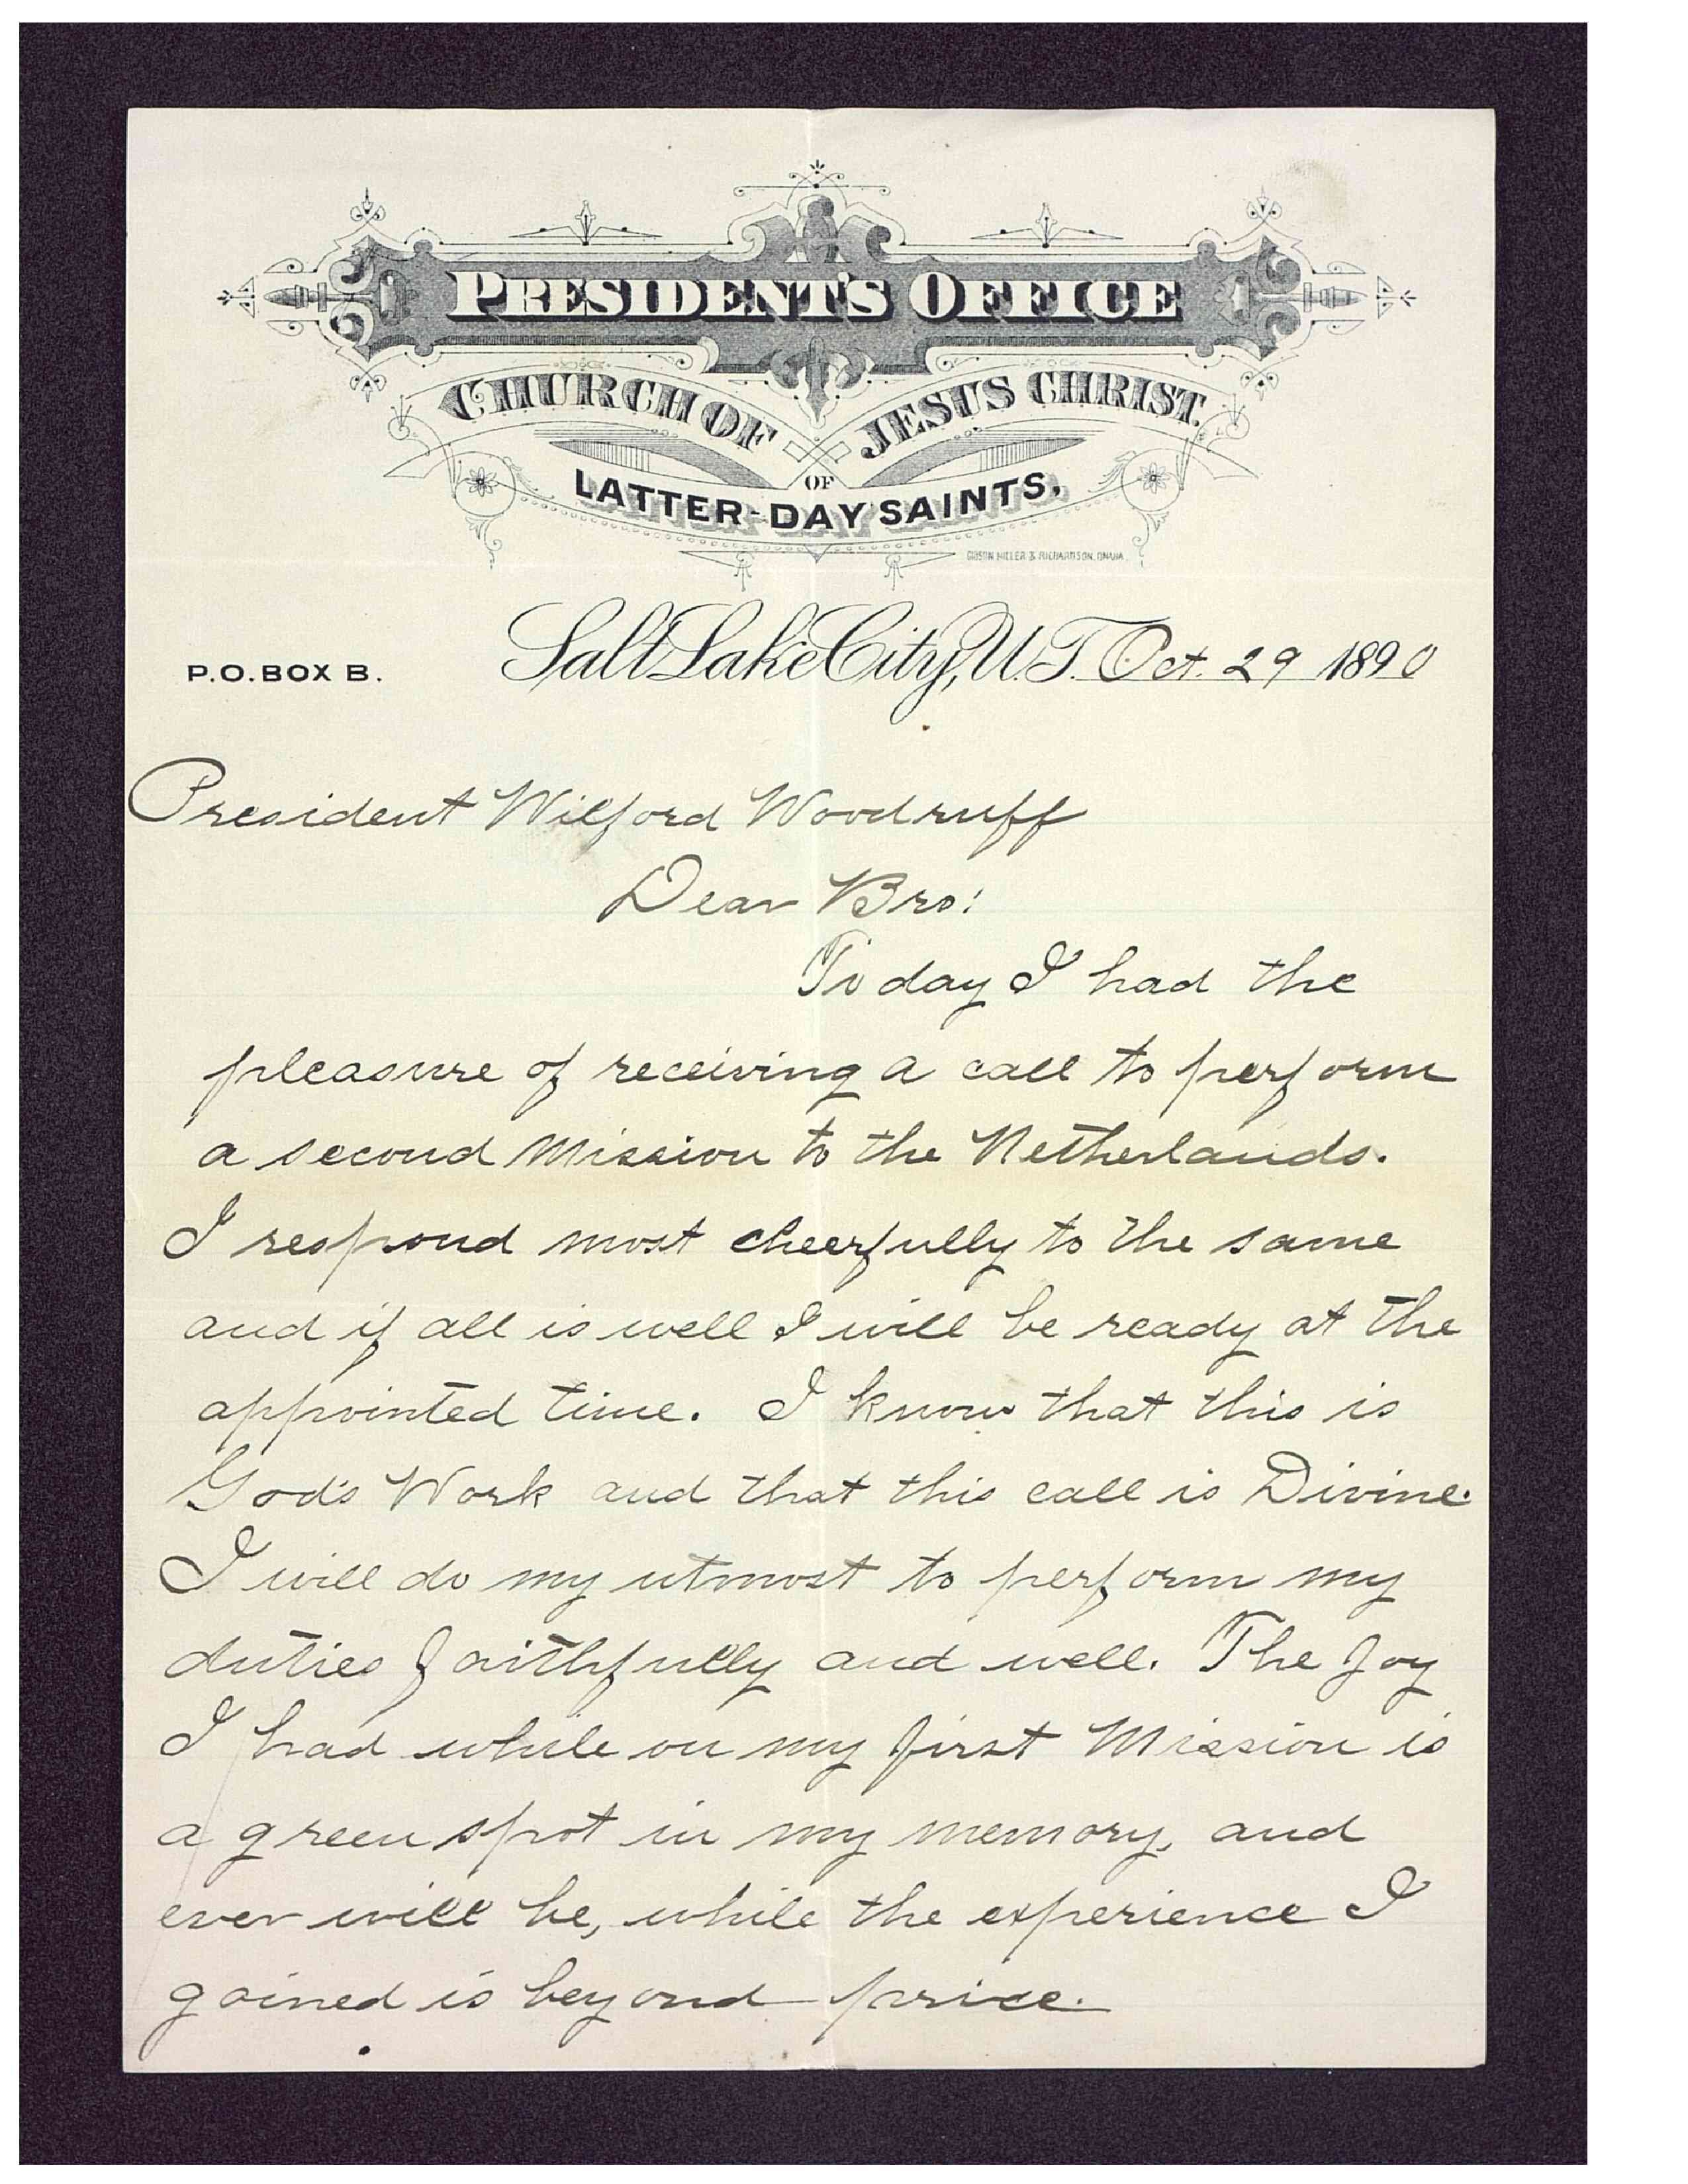 PRESIDENT'S OFFICE
CHURCH OF JESUS CHRIST.
OF
LATTER-DAY SAINTS.
P.O. BOX B.
Salt Lake City, U.T. Oct. 29 1890
President Wilford Woodruff
Dear Bro:
To day I had the
pleasure of receiving a call to perform
a second Mission to the Netherlands.
I respond most cheerfully to the same
and if all is well I will be ready at the
appointed time. I know that this is
God's Work and that this call is Divine.
I will do my utmost to perform my
duties faithfully and well. The Joy
I had while on my first Mission is
a green spot in my memory, and
ever will be, while the experience I
gained is beyond price.